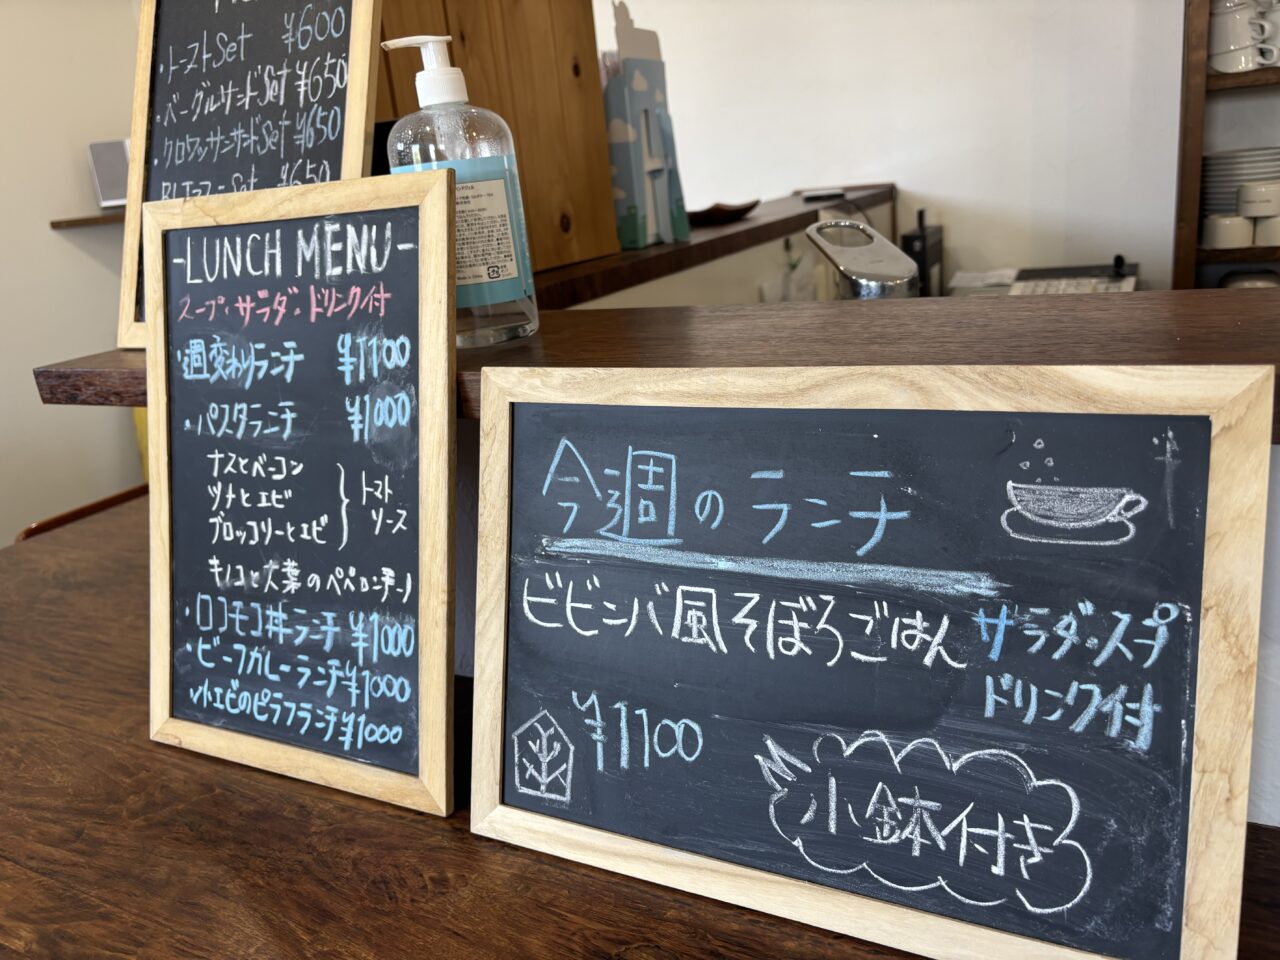 ・トーストSet ¥600
・ベーグルサンドSet ¥650
・クロワッサンサンドSet ¥650
¥650
-LUNCH MENU-
スープ・サラダ・ドリンク付
・週変わりランチ ¥1100
・パスタランチ ¥1000
ナスとベーコン
ツナとエビ
ブロッコリーとエビ
トマト
ソース
キノコと大葉のペペロンチーノ
・ロコモコ丼ランチ ¥1000
・ビーフカレーランチ ¥1000
・小エビのピラフランチ ¥1000
今週のランチ
ビビンバ風そぼろごはん
サラダ・スープ
ドリンク付
¥1100
小鉢付き